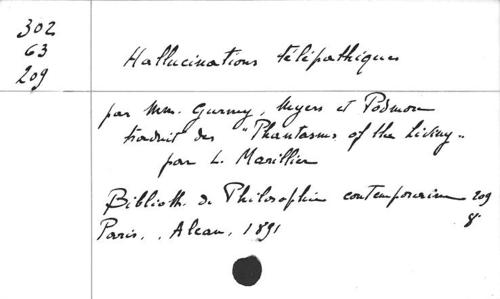 302
63
209
Hallucinations télépathiques
par MM. Gurney, Myers et Podmore
traduit des "Phantasms of the Living"
par L. Marillier
Biblioth. de Philosophie contemporaine 209
8°
Paris, Alcan, 1891